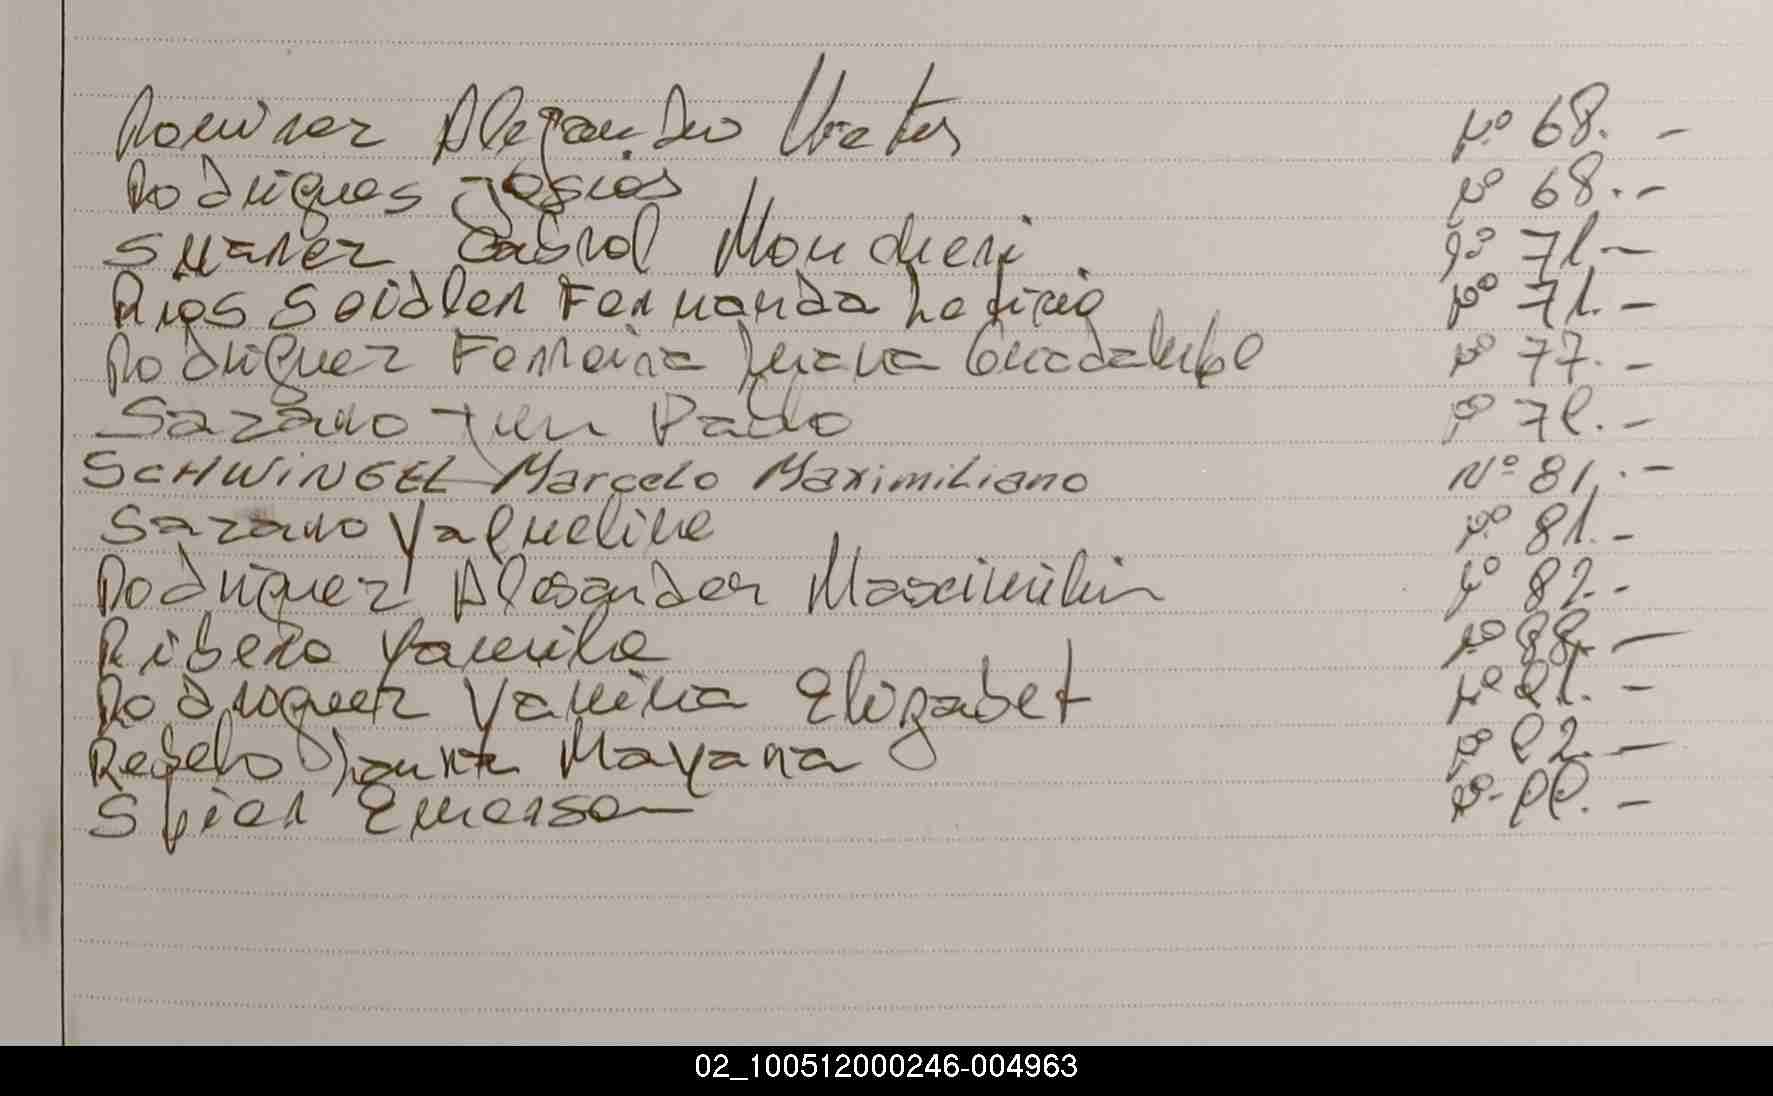 Ramirez Alejandro Matias Nº 68.-
Rodrigues Josias Nº 68.-
Suarez Cabral Moncheri Nº 71.-
Rios Seidler Fernanda Leticia Nº 71.-
Rodriguez Ferreira Juana Guadalupe Nº 77.-
Sazano Juan Pablo Nº 78.-
SCHWINGEL Marcelo Maximiliano Nº 81.-
Sazano Yaqueline Nº 81.-
Rodriguez Alesander Maximilian Nº 82.-
Ribero Yamila Nº 88.-
Rodriguez Yanina Elizabet Nº 91.-
Rebelo Mayana Nº 92.-
Spier Emerson Nº 99.-
02_100512000246-004963